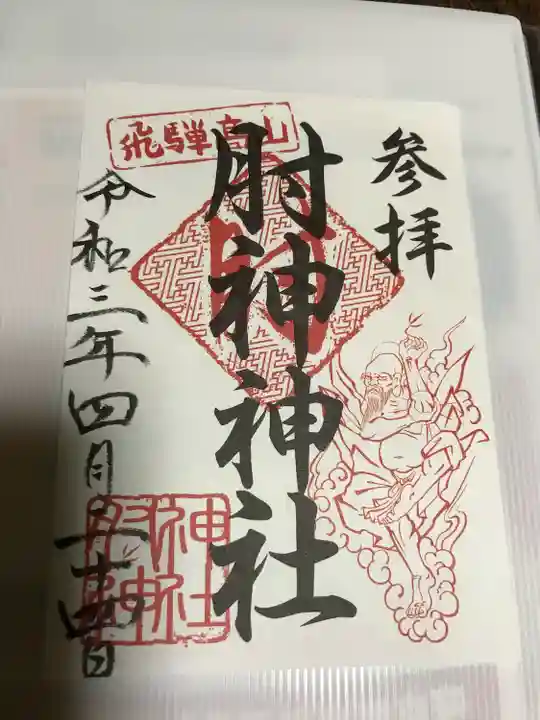 参拝
飛騨高山
肘神神社
令和三年四月二十四日
肘神神社